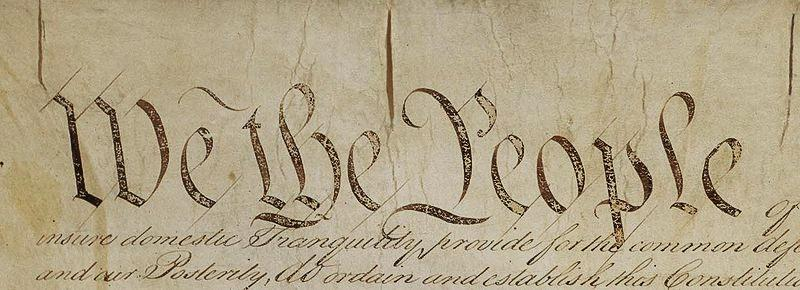 We the People
of
insure domestic Tranquility, provide for the common def
and our Posterity, do ordain and establish this Constitutio